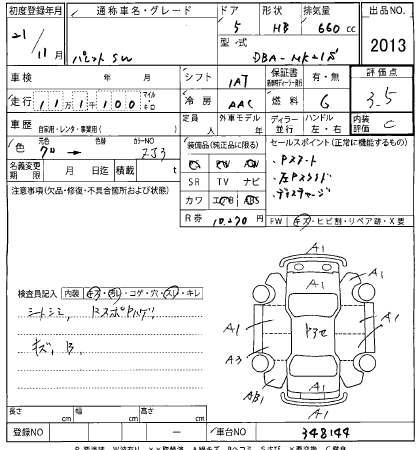 初度登録年月 通称車名・グレード ドア 形状 排気量 出品NO.
21/11月 パレットSW 5 HB 660 cc 2013
型・式 DBA-MK21S
車検 年 月 シフト 1AT 保証書 有・無 評価点
走行 111100 マイル 冷房 AAC 燃料 G 3.5
車歴 自家用・レンタ・事業用( ) 定員 人 外車モデル 年 ディーラー 並行 ハンドル 左・右 内装評価 C
色 元色 クロ → 色替 カラーNO ZJ3 装備品(純正品に限る) セールスポイント(正常に機能するもの)
PS PW
名義変更期限 月 日迄 積載 t SR TV ナビ ・Pスタート
注意事項(欠品・修復・不具合箇所および状態) カワ エアB ABS ・左Pスライド
R券 10,270円 ・ディスチャージ
FW キズ・ヒビ割・リペア跡・X要
A1
A1
A1 A1
Pスモ
A3 A1
AB1
A1
検査員記入 内装 キズ・汚れ・コゲ・穴・スレ・キレ
シートシミ、
キズ、B、
長さ cm 幅 cm 高さ cm
登録NO ー 車台NO 348144